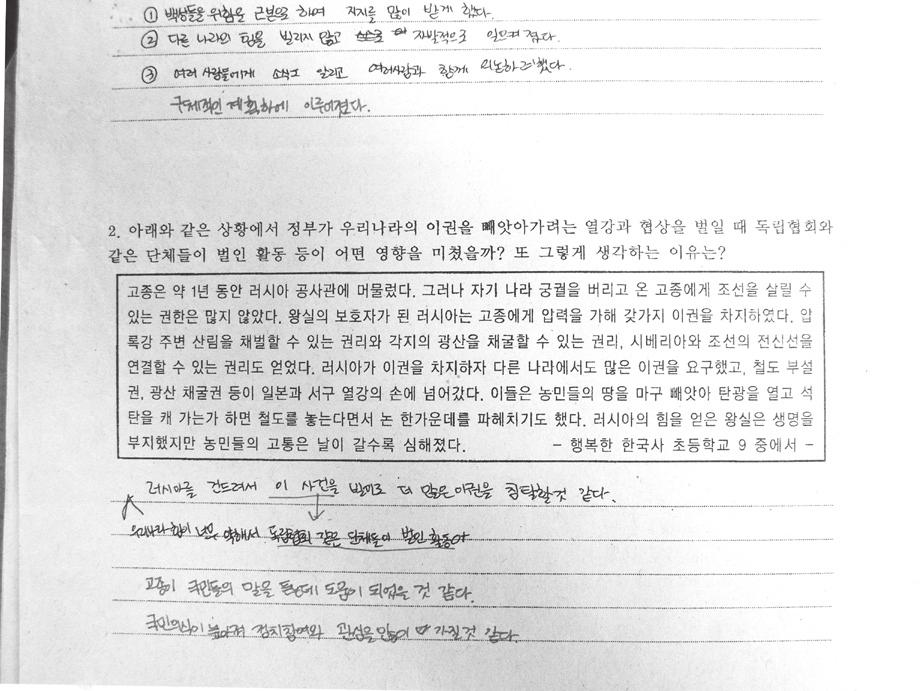 ① 백성들을 위함을 근본으로 하여 지지를 많이 받게 했다.
② 다른 나라의 힘을 빌리지 않고 자발적으로 일으켜졌다.
③ 여러 사람들에게 소식그 알리고 여러사람과 함께 의논하려했다.
구체적인 계획하에 이루어졌다.
2. 아래와 같은 상황에서 정부가 우리나라의 이권을 빼앗아가려는 열강과 협상을 벌일 때 독립협회와
같은 단체들이 벌인 활동 등이 어떤 영향을 미쳤을까? 또 그렇게 생각하는 이유는?
고종은 약 1년 동안 러시아 공사관에 머물렀다. 그러나 자기 나라 궁궐을 버리고 온 고종에게 조선을 살릴 수
있는 권한은 많지 않았다. 왕실의 보호자가 된 러시아는 고종에게 압력을 가해 갖가지 이권을 차지하였다. 압
록강 주변 산림을 채벌할 수 있는 권리와 각지의 광산을 채굴할 수 있는 권리, 시베리아와 조선의 전신선을
연결할 수 있는 권리도 얻었다. 러시아가 이권을 차지하자 다른 나라에서도 많은 이권을 요구했고, 철도 부설
권, 광산 채굴권 등이 일본과 서구 열강의 손에 넘어갔다. 이들은 농민들의 땅을 마구 빼앗아 탄광을 열고 석
탄을 캐 가는가 하면 철도를 놓는다면서 논 한가운데를 파헤치기도 했다. 러시아의 힘을 얻은 왕실은 생명을
부지했지만 농민들의 고통은 날이 갈수록 심해졌다. - 행복한 한국사 초등학교 9 중에서 -
러시아를 건드려서 이 사건을 빌미로 더 많은 이권을 침탈할것 같다.
우리나라 힘이 너무 약해서 독립협회 같은 단체들이 벌인 활동이
고종이 국민들의 말을 듣는데 도움이 되었을 것 같다.
국민의식이 높아져 정치참여와 관심을 많이 가질것 같다.